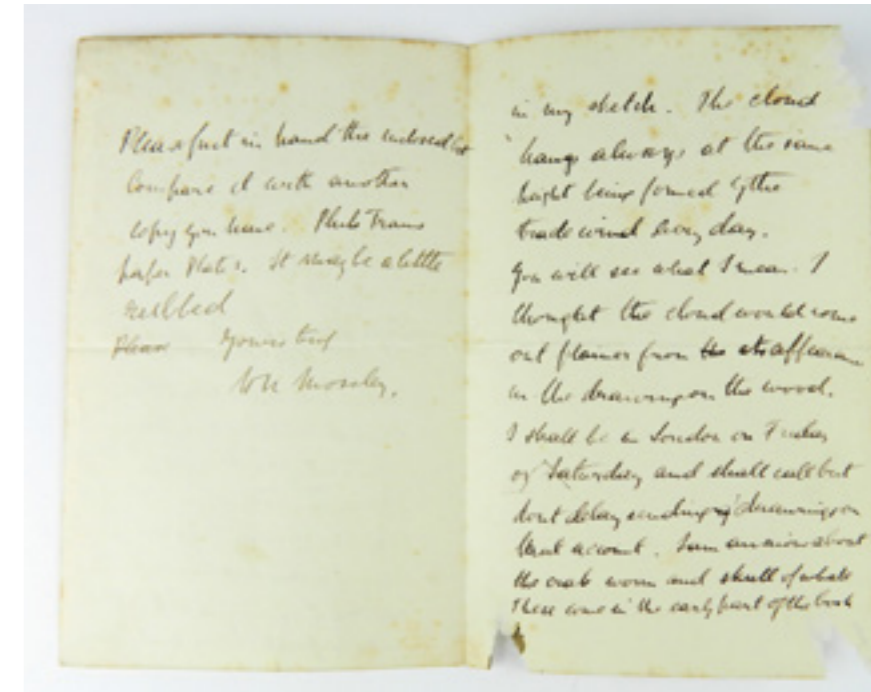 Please put in hand the inclosed but
Compare it with another
copy you have. Philo Trans
paper Plates. It may be a little
rubbed
Please Yours truly
H N Moseley.
in my sketch. The cloud
hangs always at the same
height being formed by the
trade wind every day.
You will see what I mean. I
thought the cloud would come
out plainer from its appearance
in the drawing on the wood.
I shall be in London on Friday
or Saturday and shall call but
dont delay sending drawings on
that account. I am anxious about
the crab worm and skull of whale
These come in the early part of the book